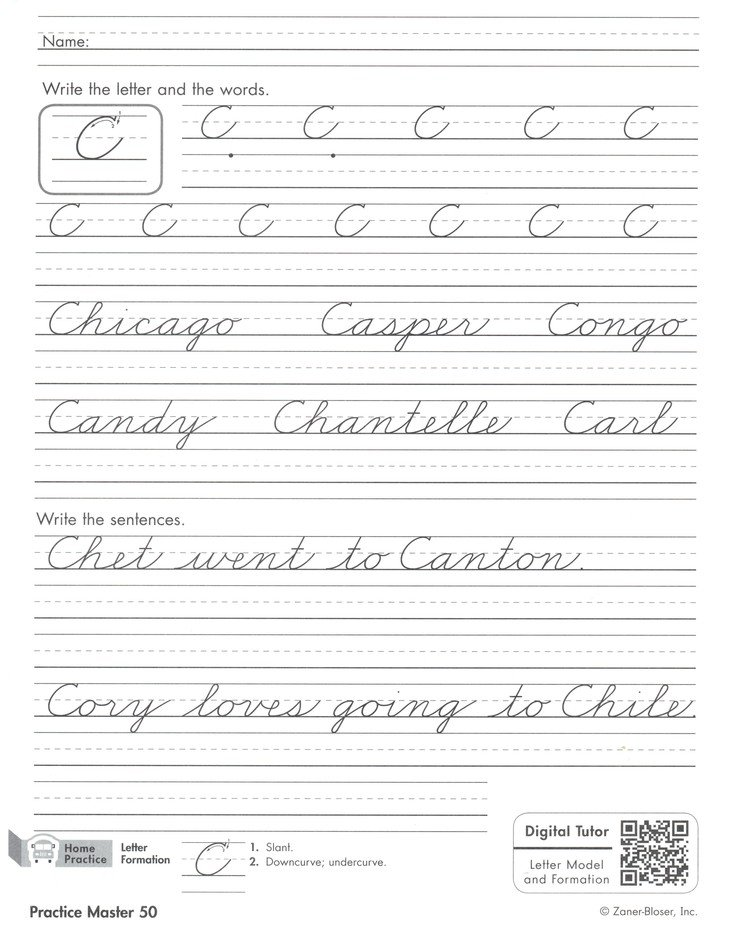 Name:
Write the letter and the words.
C
C C C C C
C C C C C C C
Chicago Casper Congo
Candy Chantelle Carl
Write the sentences.
Chet went to Canton.
Cory loves going to Chile.
Home Practice
Letter Formation
C
1. Slant.
2. Downcurve; undercurve.
Digital Tutor
Letter Model
and Formation
Practice Master 50
© Zaner-Bloser, Inc.